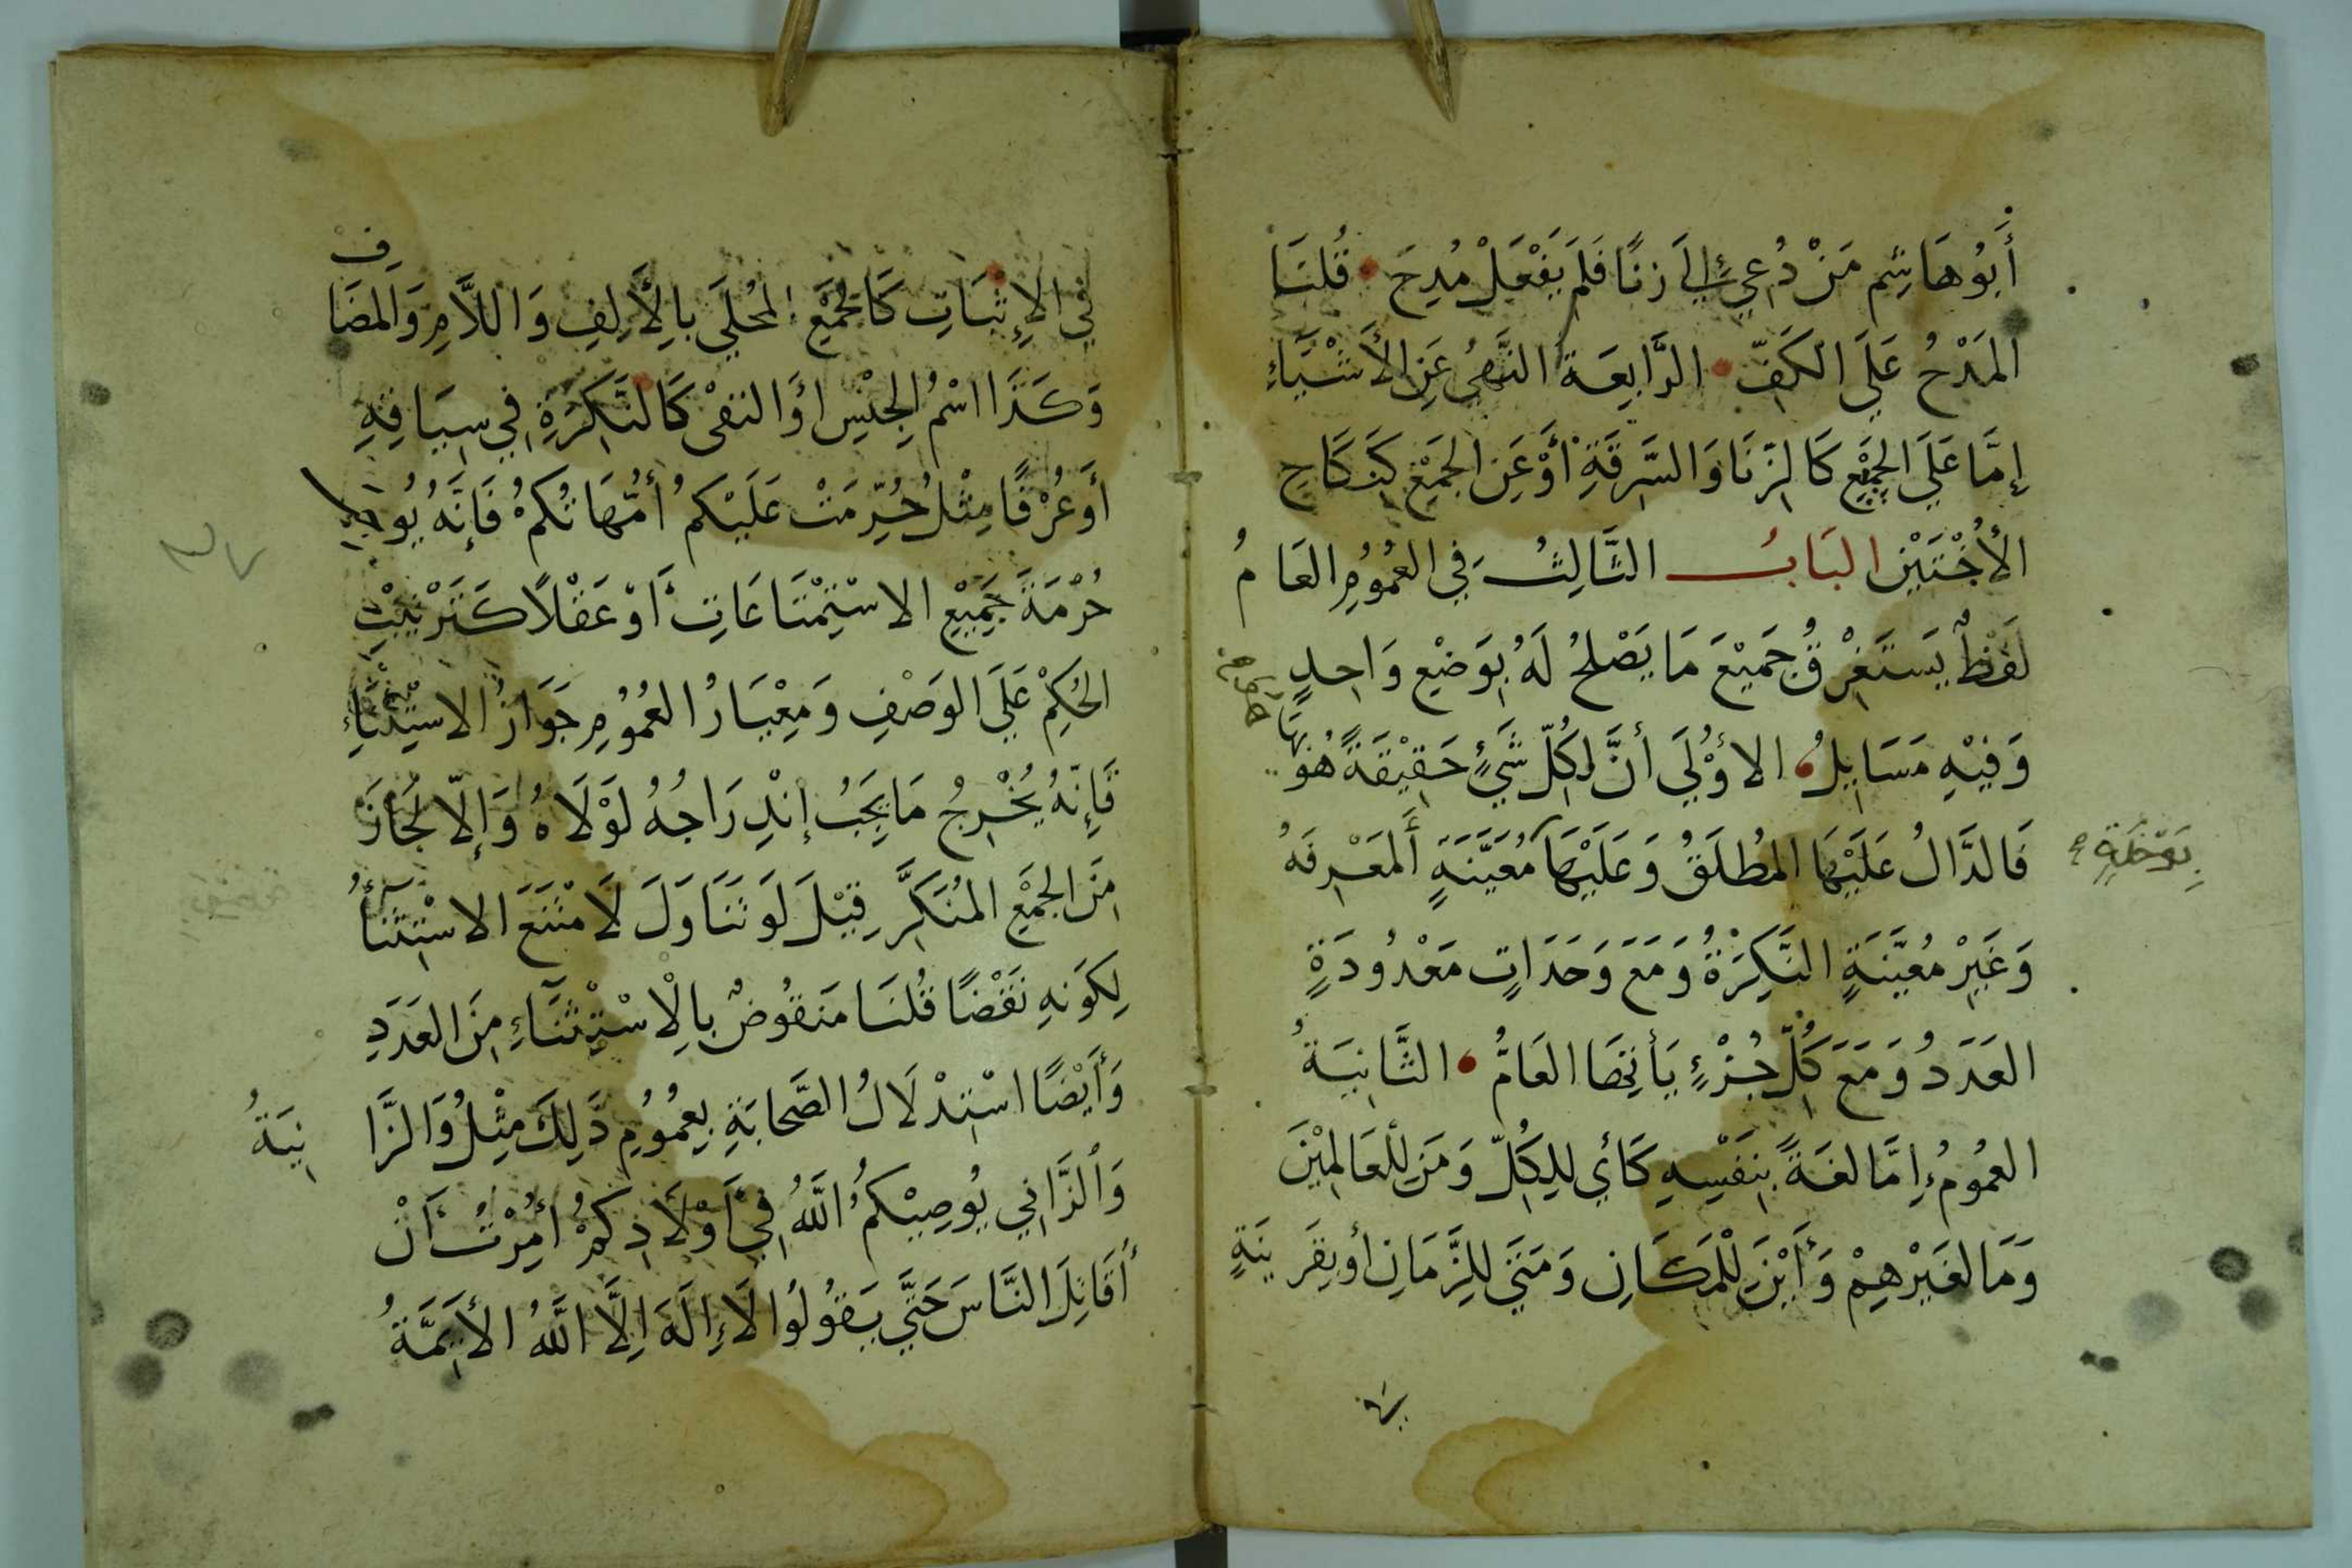 أَبُو هَاشِمٍ مَنْ دُعِيَ إِلَى زِنًا فَلَمْ يَفْعَلْ مُدِحَ قُلْنَا
المَدْحُ عَلَى الكَفِّ الرَّابِعَةُ النَّهْيُ عَنِ الأَشْيَاءِ
إِمَّا عَلَى الجَمْعِ كَالزِّنَا وَالسَّرِقَةِ أَوْ عَنِ الجَمْعِ كَنِكَاحِ
الأُخْتَيْنِ البَابُ الثَّالِثُ فِي العُمُومِ العَامُ
لَفْظٌ يَسْتَغْرِقُ جَمِيْعَ مَا يَصْلُحُ لَهُ بِوَضْعٍ وَاحِدٍ
وَفِيْهِ مَسَايِلُ الأُوْلَى أَنَّ لِكُلِّ شَيْءٍ حَقِيْقَةً هُوَ بِهَا
فَالدَّالُ عَلَيْهَا المُطْلَقُ وَعَلَيْهَا مُعَيَّنَةٍ المَعْرِفَهُ
بِوَحْدَةٍ
وَغَيْرِ مُعَيَّنَةٍ النَّكِرَةُ وَمَعَ وَحَدَاتٍ مَعْدُودَةٍ
العَدَدُ وَمَعَ كُلِّ جُزْءٍ يَأْتِهَا العَامُّ الثَّانِيَةُ
العُمُومُ إِمَّا لُغَةً بِنَفْسِهِ كَأَي لِلِكُلِّ وَمَنْ لِلْعَالَمِيْنَ
وَمَا لِغَيْرِهِمْ وَأَيْنَ لِلْمَكَانِ وَمَتَى لِلزَّمَانِ أَو بِقَرِينَةٍ
فِي الإِثْبَاتِ كَالجَمْعِ المُحَلَى بِالأَلِفِ وَاللاَّمِ وَالمُضَافِ
وَكَذَا اسْمُ الجِنْسِ أَوَ النَفْى كَالنَكِرَةِ فِي سِيَاقِهِ
أَوْ عُرْفًا مِثْلُ حُرِّمَتْ عَلَيْكُمُ أُمَّهَاتُكُمْ فَإِنَّهُ يُوجِبُ
حُرْمَةَ جَمِيْعِ الاسْتِمْتَاعَاتِ أَوْ عَقْلًا كَتَرْتِيْبِ
الحُكْمِ عَلَى الوَصْفِ وَمِعْيَارُ العُمُومِ جَوَازُ الاسْتِثْنَاءِ
فَإِنَّهُ يُخْرِجُ مَا يَجِبُ إنْدِرَاجُهُ لَوْلَاهُ وَإِلاَّ لَجَازَ
مِنَ الجَمْعِ المُنَكَّرِ قِيْلَ لَو تَنَاوَلَ لَامْتَنَعَ الاسْتِثْنَاءُ
لِكَونِهِ نَقْضًا قُلْنَا مَنْقُوضٌ بِالِاسْتِثْنَاءِ مِنَ العَدَدِ
وَأَيْضًا اسْتِدْلَالُ الصَّحَابَةِ بِعُمُومِ ذَلِكَ مِثْلُ وَالزَّانِيَةُ
وَالزَّانِي يُوصِيْكُمُ اللَّهُ فِي أَوْلَادِكُمْ أُمِرْتُ أَنْ
أُقَاتِلَ النَّاسَ حَتَّى يَقُولُوا لَا إِلَهَ إِلَّا اللَّهُ الأَيِمَّةُ